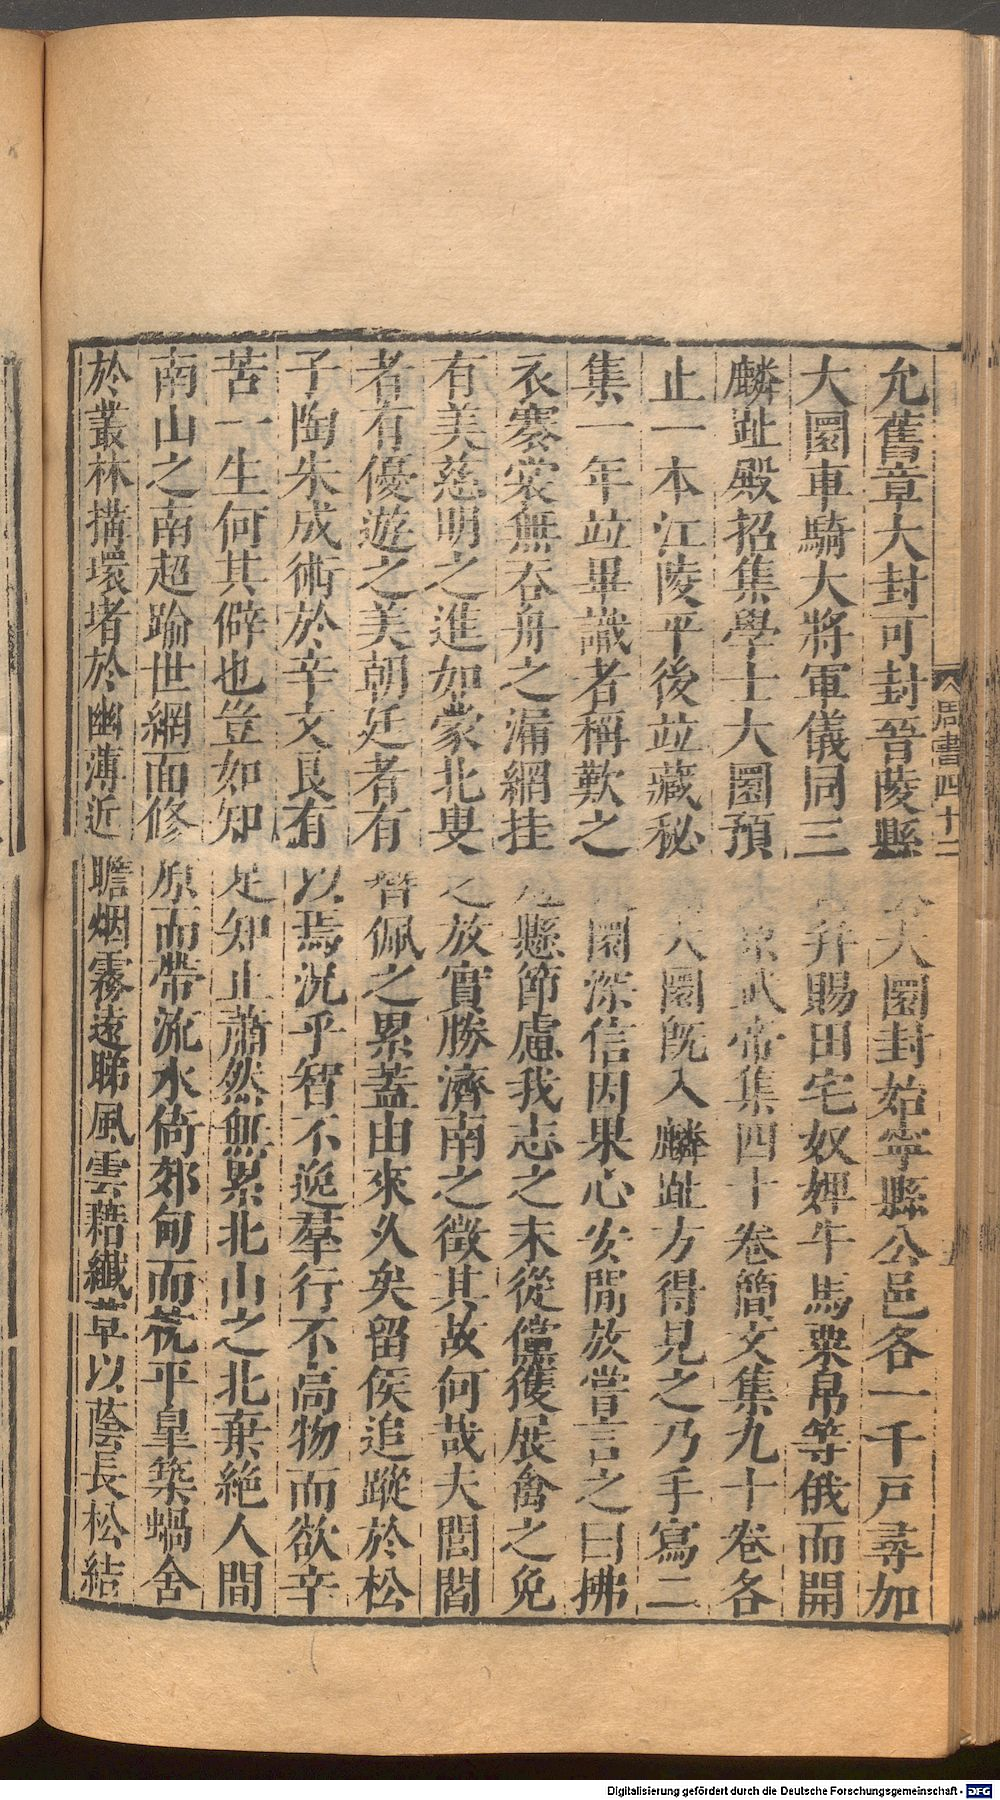 允舊章大封可封晉陵縣公大圜封始寧縣公邑各一千戸尋加
大圜車騎大將軍儀同三 幷賜田宅奴婢牛馬粟帛等俄而開
麟趾殿招集學士大圜預 武帝集四十卷簡文集九十卷各
止一本江陵平後竝藏秘 大圜旣入麟趾方得見之乃手寫二
集一年竝畢識者稱歎之 圜深信因果心安閒放嘗言之曰拂
衣褰裳無吞舟之漏網挂 懸節慮我志之未從儻獲展禽之免
有美慈明之進如蒙北叟之放實勝濟南之徵其故何哉夫閭閻
者有優遊之美朝廷者有簪佩之累蓋由來久矣留侯追蹤於松
子陶朱成術於辛文良有以焉況乎智不逸羣行不高物而欲辛
苦一生何其僻也豈如知足知止蕭然無累北山之北棄絶人間
南山之南超踰世網面修原而帶流水倚郊甸而枕平皐築蝸舍
於叢林搆環堵於幽薄近瞻烟霧遠睇風雲藉纖草以蔭長松結
周書四十二
五
Digitalisierung gefördert durch die Deutsche Forschungsgemeinschaft - DFG